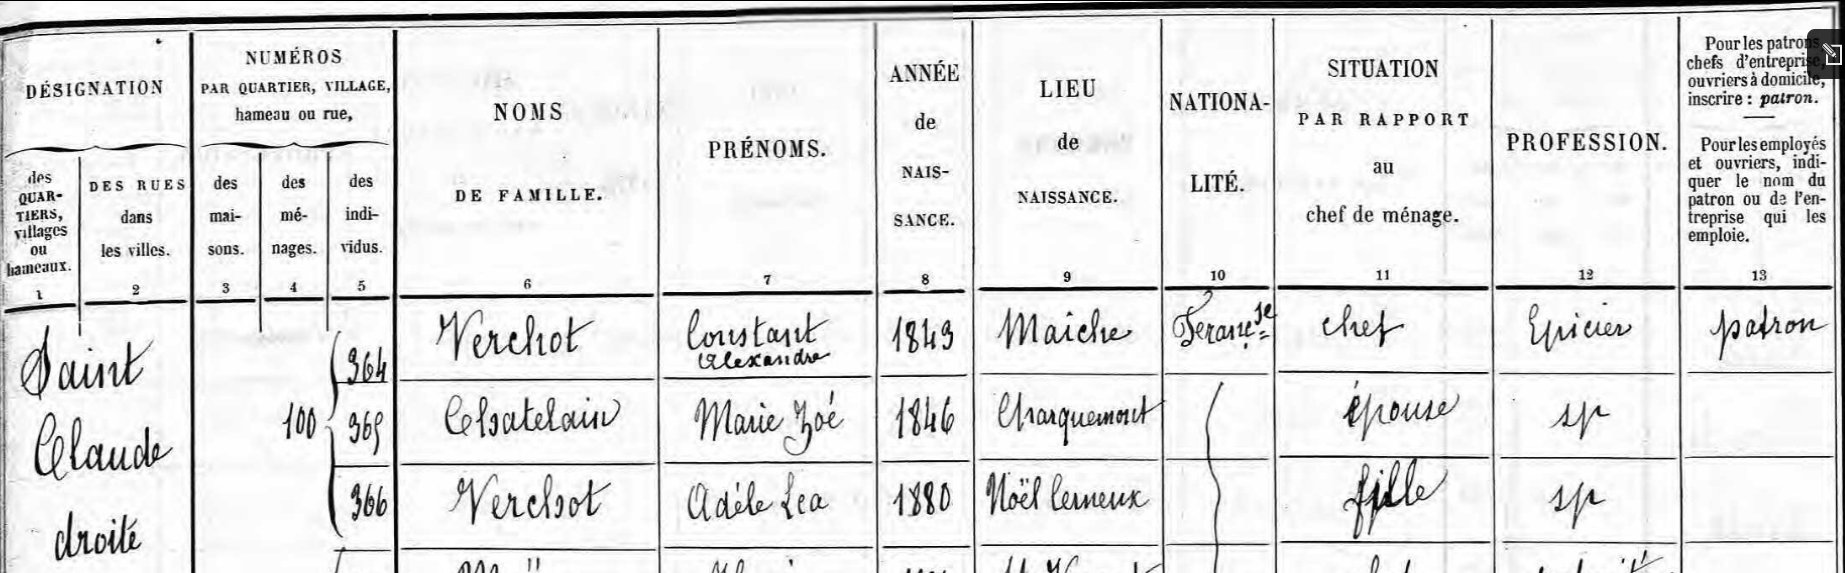 DÉSIGNATION
NUMÉROS
PAR QUARTIER, VILLAGE,
hameau ou rue,
NOMS
DE FAMILLE.
PRÉNOMS.
ANNÉE
de
NAIS-
SANCE.
LIEU
de
NAISSANCE.
NATIONA-
LITÉ.
SITUATION
PAR RAPPORT
au
chef de ménage.
PROFESSION.
Pour les patrons,
chefs d'entreprise,
ouvriers à domicile,
inscrire : patron.
Pour les employés
et ouvriers, indi-
quer le nom du
patron ou de l'en-
treprise qui les
emploie.
des
QUAR-
TIERS,
villages
ou
hameaux.
DES RUES
dans
les villes.
des
mai-
sons.
des
mé-
nages.
des
indi-
vidus.
1 2 3 4 5 6 7 8 9 10 11 12 13
Saint
Claude
droite
100
364 Verchot Constant Alexandre 1849 Maiche Franc.se chef Epicier patron
365 Chatelain Marie Zoé 1846 Charquemont épouse sp
366 Verchot Adèle Lea 1880 Noël Cerneux fille sp